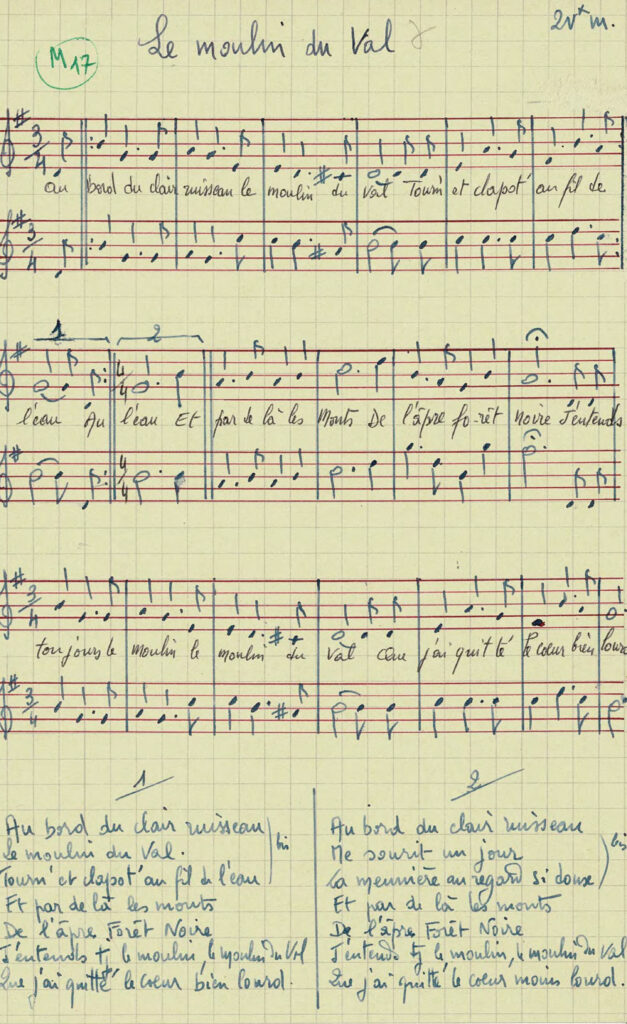 2v x m.
M17
Le moulin du Val
3/4
au bord du clair ruisseau le moulin du Val Tourn' et clapot' au fil de
3/4
1 2
4/4
l'eau Au l'eau Et par de là les Monts De l'âpre fo-rêt noire J'entends
4/4
3/4
toujours le moulin le moulin du Val Que j'ai quit'té le coeur bien lourd
3/4
1
Au bord du clair ruisseau
Le moulin du Val.
bis
Tourn' et clapot' au fil de l'eau
Et par de là les monts
De l'âpre Forêt Noire
J'entends tj le moulin, le moulin du Val
Que j'ai quitté le coeur bien lourd.
2
Au bord du clair ruisseau
Me sourit un jour
bis
La meunière au regard si doux
Et par de là les monts
De l'âpre Forêt Noire
J'entends tj le moulin, le moulin du Val
Que j'ai quitté le coeur moins lourd.